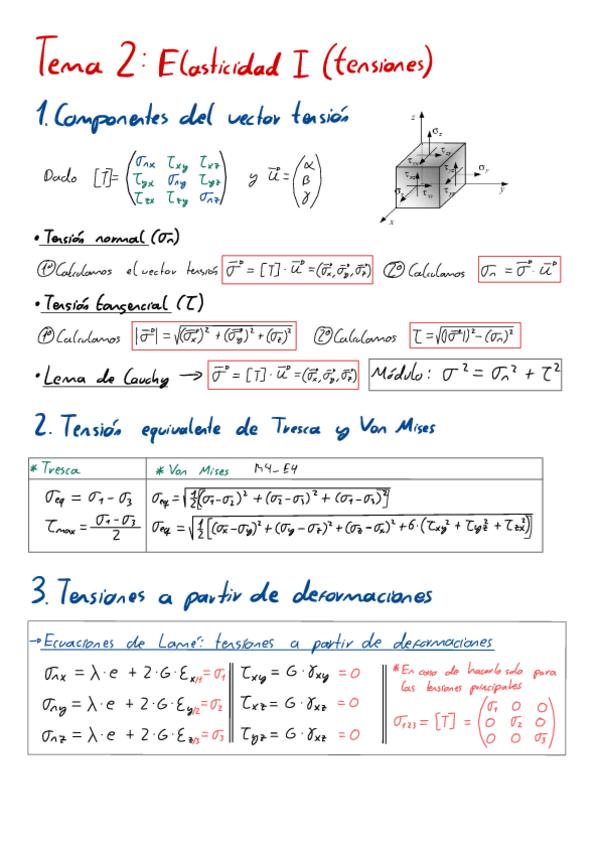 Tema 2: Elasticidad I (tensiones)
1. Componentes del vector tensión
Dado [T]= (σnx τxy τxz
τyx σny τyz
τzx τzy σnz) y u⃗ = (α
β
γ)
z
σz
σy
y
x
• Tensión normal (σn)
1º Calculamos el vector tensión σ⃗ = [T] · u⃗ = (σ⃗x, σ⃗y, σ⃗z) 2º Calculamos σn = σ⃗ · u⃗
• Tensión tangencial (τ)
1º Calculamos |σ⃗| = √(σ⃗x)² + (σ⃗y)² + (σz)² 2º Calculamos τ = √(|σ⃗|)² - (σn)²
• Lema de Cauchy → σ⃗ = [T] · u⃗ = (σ⃗x, σ⃗y, σ⃗z) Módulo: σ² = σn² + τ²
2. Tensión equivalente de Tresca y Von Mises
* Tresca * Von Mises M4_E4
σeq = σ1 - σ3 σeq = √1/2[(σ1-σ2)² + (σ2-σ3)² + (σ1-σ3)²]
τmax = (σ1-σ3)/2 σeq = √1/2[(σx-σy)² + (σy-σz)² + (σz-σx)² + 6·(τxy² + τyz² + τzx²)]
3. Tensiones a partir de deformaciones
→ Ecuaciones de Lamé: tensiones a partir de deformaciones
σnx = λ·e + 2·G·εx/1 = σ1 τxy = G·γxy = 0
σny = λ·e + 2·G·εy/2 = σ2 τxz = G·γxz = 0
σnz = λ·e + 2·G·εz/3 = σ3 τyz = G·γxz = 0
* En caso de hacerlo solo para
las tensiones principales
σ123 = [T] = (σ1 0 0
0 σ2 0
0 0 σ3)